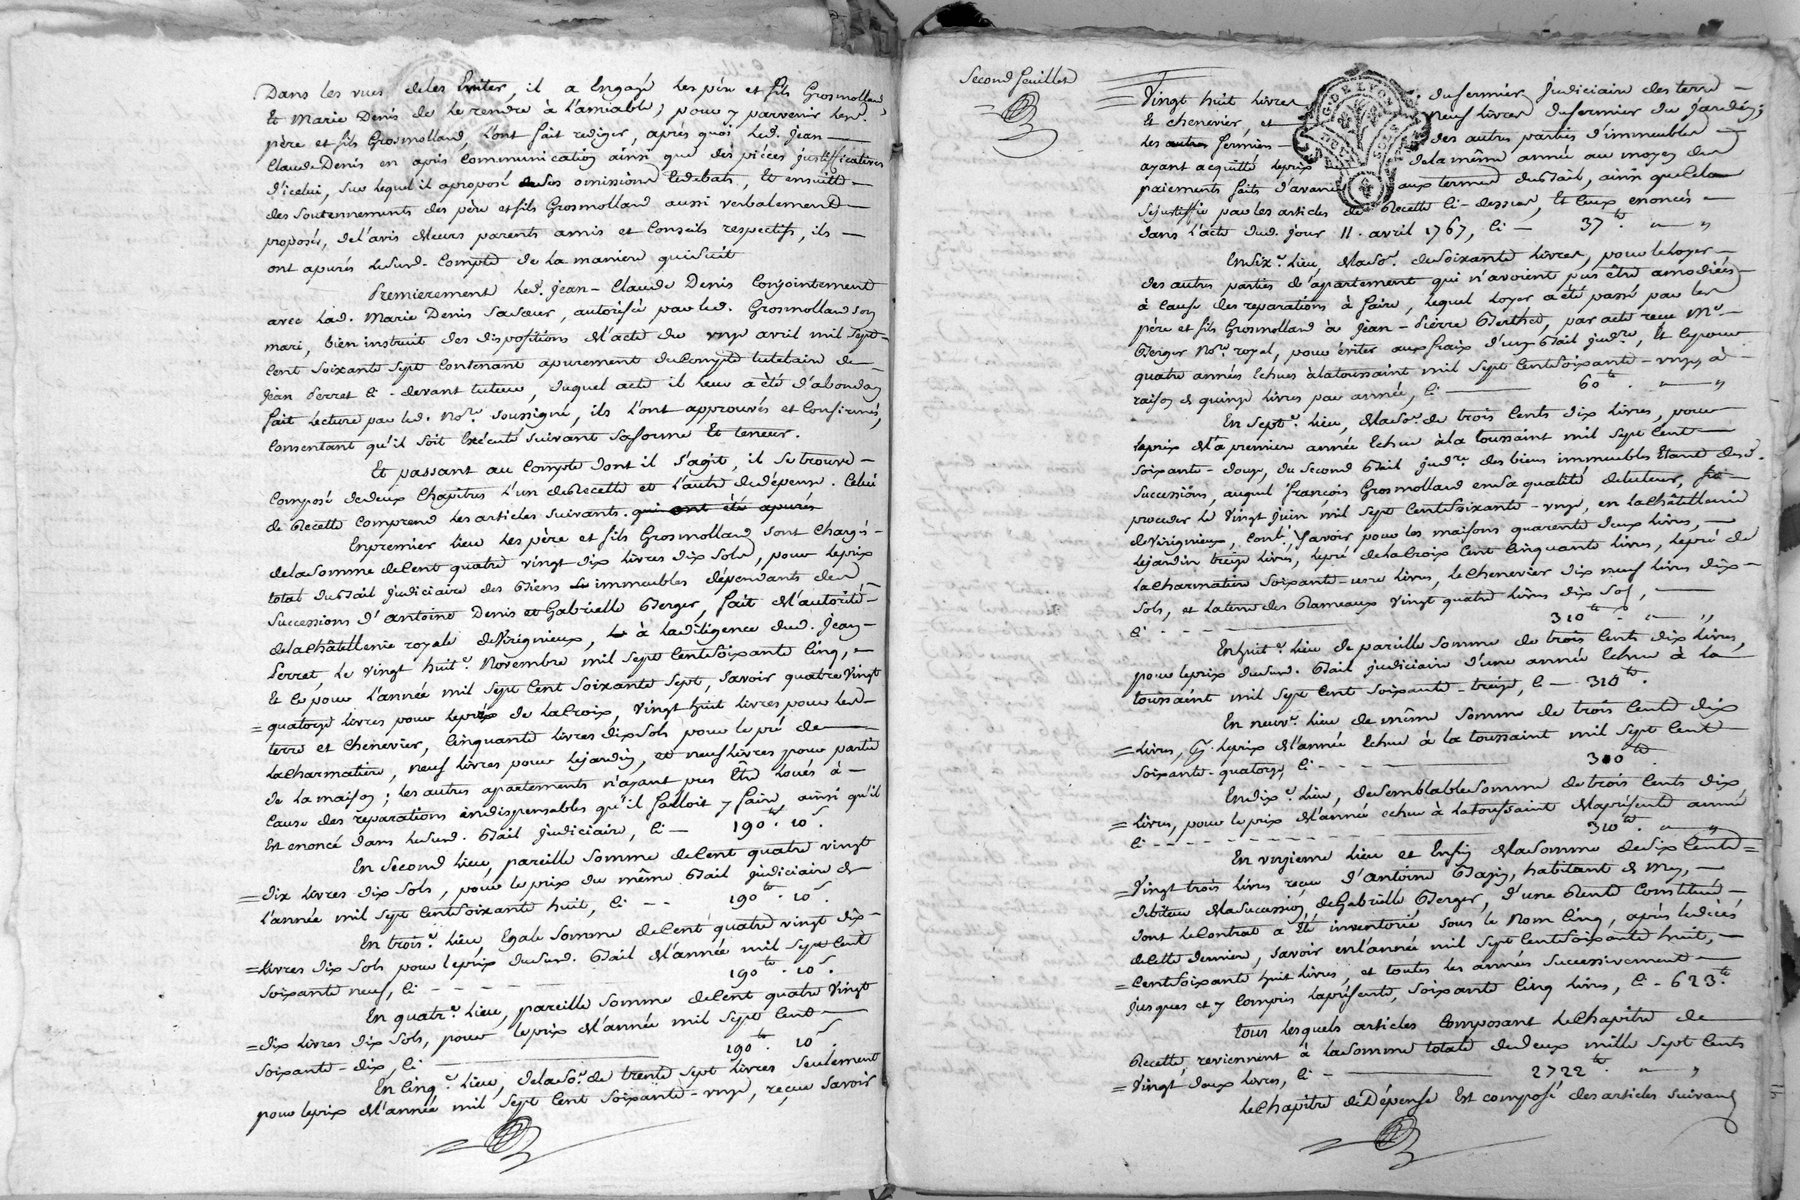 Dans les vues de les Eviter, il a Engagé les père et fils Grosmolland
Et Marie Denis de le rendre à l'amiable; pour y parvenir lesd.
père et fils Grosmolland, l'ont fait rediger, après quoi led. Jean
Claude Denis en apris Communication ainsi que des pièces justifficatives
d'icelui, sur lequel il aproposé ses omissions et debats, Et ensuitte
des Soutennements des père et fils Grosmolland aussi verbalement
proposés, de l'avis de leurs parents amis et Conseils respectifs, ils
ont apurés led. Compte de la maniere qui suit
Premierement led. Jean-Claude Denis Conjointement
avec lad. Marie Denis Sa soeur, autorisée par led. Grosmolland son
mari, bien instruit des dispositions de l'acte du onze avril mil Sept
Cent Soixante Sept Contenant apurement du Compte tutelaire de
Jean Perret Ci-devant tuteur, duquel acte il leur a été d'abondan
fait lecture par led. Nore. Soussigné, ils l'ont approuvés et Confirmés,
Consentant qu'il soit Exécuté Suivant Sa forme Et teneur.
Et passant au Compte dont il s'agit, il se trouve
Composé de deux Chapitres l'un de Recette et l'autre de dépense. Celui
de Recette Comprend les articles Suivants. qui ont été apurés
En premier lieu les père et fils Grosmolland sont Chargés
de la Somme de Cent quatre vingt dix livres dix Sols, pour le prix
total du Bail judiciaire des Biens immeubles dépendants des
Successions d'antoine Denis et Gabrielle Berger, fait de l'autorité
de la Châtellenie royale de Virignieux, à la diligence dud. Jean
Perret, le vingt huite. Novembre mil Sept Cent Soixante Cinq,
Et ce pour l'année mil Sept Cent Soixante Sept, Savoir quatre vingt
quatorze livres pour le pré de la Croix, vingt huit livres pour les
terre et Chenevier, Cinquante livres dix Sols pour le pré de
la Charmatiere, neuf livres pour le jardin, et neuf livres pour partie
de la maison; les autres apartements n'ayant pus Être loués à
Cause des reparations indispensables qu'il falloit y faire, ainsi qu'il
Est enoncé dans led. Bail judiciaire, Ci — 190tt. 10s.
En Second lieu, pareille Somme de Cent quatre vingt
dix livres dix Sols, pour le prix du même Bail judiciaire de
l'année mil Sept Cent Soixante huit, Ci - - 190tt. 10s.
En troise. lieu, Egale Somme de Cent quatre vingt dix
livres dix Sols pour le prix dud. Bail de l'année mil Sept Cent
Soixante neuf, Ci - - - 190tt. 10s.
En quatre. lieu, pareille Somme de Cent quatre vingt
dix livres dix Sols, pour le prix de l'année mil Sept Cent
Soixante-dix, Ci 190tt. 10s.
En Cinqe. lieu, de la So. de trente Sept livres Seulement
pour le prix de l'année mil Sept Cent Soixante-onze, reçue Savoir
Second feuillet
G. DE LYON
Vingt huit livres du fermier judiciaire des terre
Et chenevier, et neuf livres du fermier du Jardin;
les autres fermiers des autres parties d'immeubles
ayant acquitté le prix de la même année au moyen des
paiements faits d'avance aux termes du Bail, ainsi que cela
Se justiffie par les articles de Recette Ci-dessus, Et Ceux enoncés
dans l'acte dud. jour 11. avril 1767, Ci — 37tt. " "
En Sixe. lieu, de la So. de Soixante livres, pour le loyer
des autres parties d'apartement qui n'avoient pus être amodiées
à Cause des reparations à faire, lequel loyer a été passé par les
père et fils Grosmolland à Jean-Pierre Berthet, par acte reçu Me.
Berger Nore. royal, pour éviter aux fraix d'un Bail judre, Et Ce pour
quatre années Echues à la toussaint mil Sept Cent Soixante-onze à
raison de quinze livres par année, Ci 60tt. " "
En Septe. lieu, de la So. de trois Cents dix livres, pour
le prix de la premiere année Echue à la toussaint mil Sept Cent
Soixante-douze, du Second Bail judre. des biens immeubles Etant desd.
Successions, auquel françois Grosmolland en Sa qualité de tuteur, fit
proceder le vingt juin mil Sept Cent Soixante-onze, en la Châtellenie
de Virignieux, Cont. Savoir pour les maisons quarente deux livres,
le jardin treize livres, le pré de la Croix Cent Cinquante livres, le pré de
la Charmatiere Soixante-une livres, le Chenevier dix neuf livres dix
Sols, et la terre des Rameaux vingt quatre livres dix Sols,
Ci - - - 310tt. " "
En huite. lieu de pareille Somme de trois Cents dix livres,
pour le prix dud. Bail judiciaire d'une année Echue à la
toussaint mil Sept Cent Soixante-treize, Ci — 310tt.
En neuve. lieu de même Somme de trois Cents dix
livres, pr. le prix de l'année Echue à la toussaint mil Sept Cent
Soixante-quatorze, Ci - - - 310tt.
En dixe. lieu, de Semblable Somme de trois Cents dix
livres, pour le prix de l'année echue à la toussaint de la présente année
Ci - - - 310tt. " "
En onzieme lieu et Enfin de la Somme de Six Cents
Vingt trois livres reçue d'antoine Bazin, habitant de
debiteur de la Succession de Gabrielle Berger, d'une Rente Constituée
dont le Contrat a Eté inventorié Sous le Nom Cinq, après le décès
de Cette derniere, Savoir en l'année mil Sept Cent Soixante huit,
Cent Soixante huit livres, et toutes les années Successivement
jusques et y Compris la présente, Soixante Cinq livres, Ci - 623tt.
Tous lesquels articles Composant le Chapitre de
Recette, reviennent à la Somme totale de deux mille Sept Cents
Vingt deux livres, Ci - 2722tt. " "
Le Chapitre de Dépense Est composé des articles Suivans